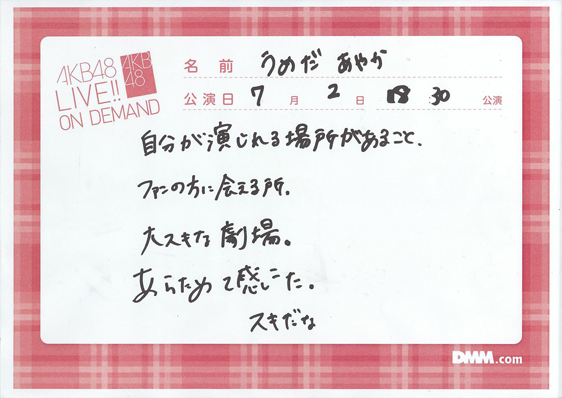 AKB48
LIVE!!
ON DEMAND
AKB
48
名前 うめだ あやか
公演日 7月 2日 18 30 公演
自分が演じれる場所があること、
ファンの方に会える所。
大スキな劇場。
あらためて感じた。
スキだな
DMM.com